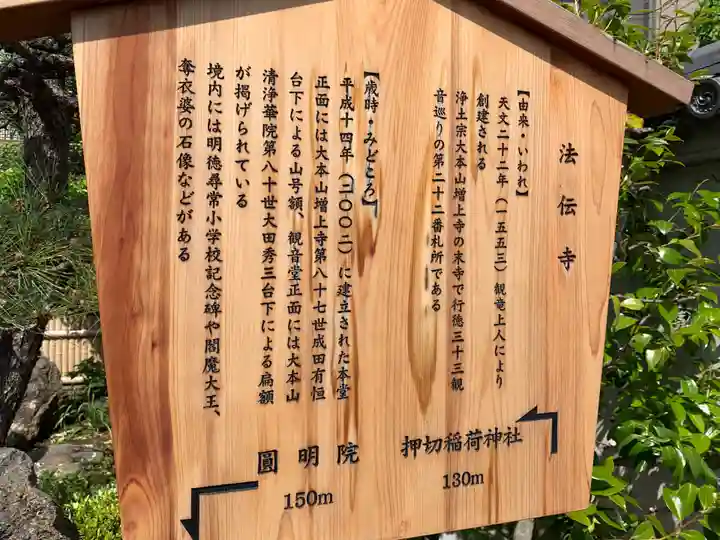 法伝寺
【由来・いわれ】
天文二十二年（一五五三）観竜上人により
創建される
浄土宗大本山増上寺の末寺で行徳三十三観
音巡りの第二十二番札所である
【歳時・みどころ】
平成十四年（二〇〇二）に建立された本堂
正面には大本山増上寺第八十七世成田有恒
台下による山号額、観音堂正面には大本山
清浄華院第八十世大田秀三台下による扁額
が掲げられている
境内には明徳尋常小学校記念碑や閻魔大王、
奪衣婆の石像などがある
押切稲荷神社
130m
圓明院
150m